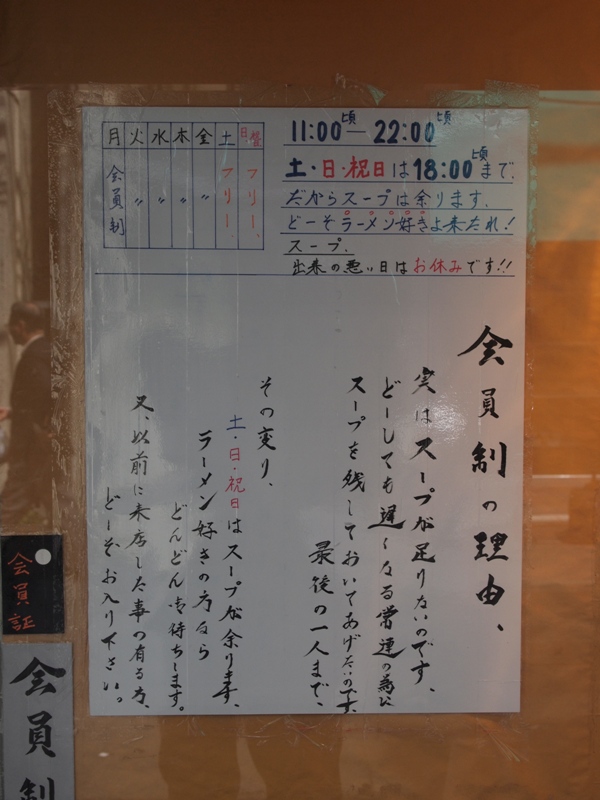 月 火 水 木 金 土 日祭
会員制 〃 〃 〃 〃 フリー、 フリー、
11:00頃―22:00頃
土・日・祝日は18:00頃まで、
だからスープは余ります、
どーそラーメン好きよ来たれ!
スープ、
出来の悪い日はお休みです!!
会員制の理由、
実はスープが足りないのです、
どーしても遅くなる常連の為に
スープを残しておいてあげたいのです、
最後の一人まで、
その変り、
土・日・祝日はスープが余ります、
ラーメン好きの方なら
どんどんお待ちします。
又、以前に来店した事の有る方、
どーぞお入り下さい。
会員証
会員制